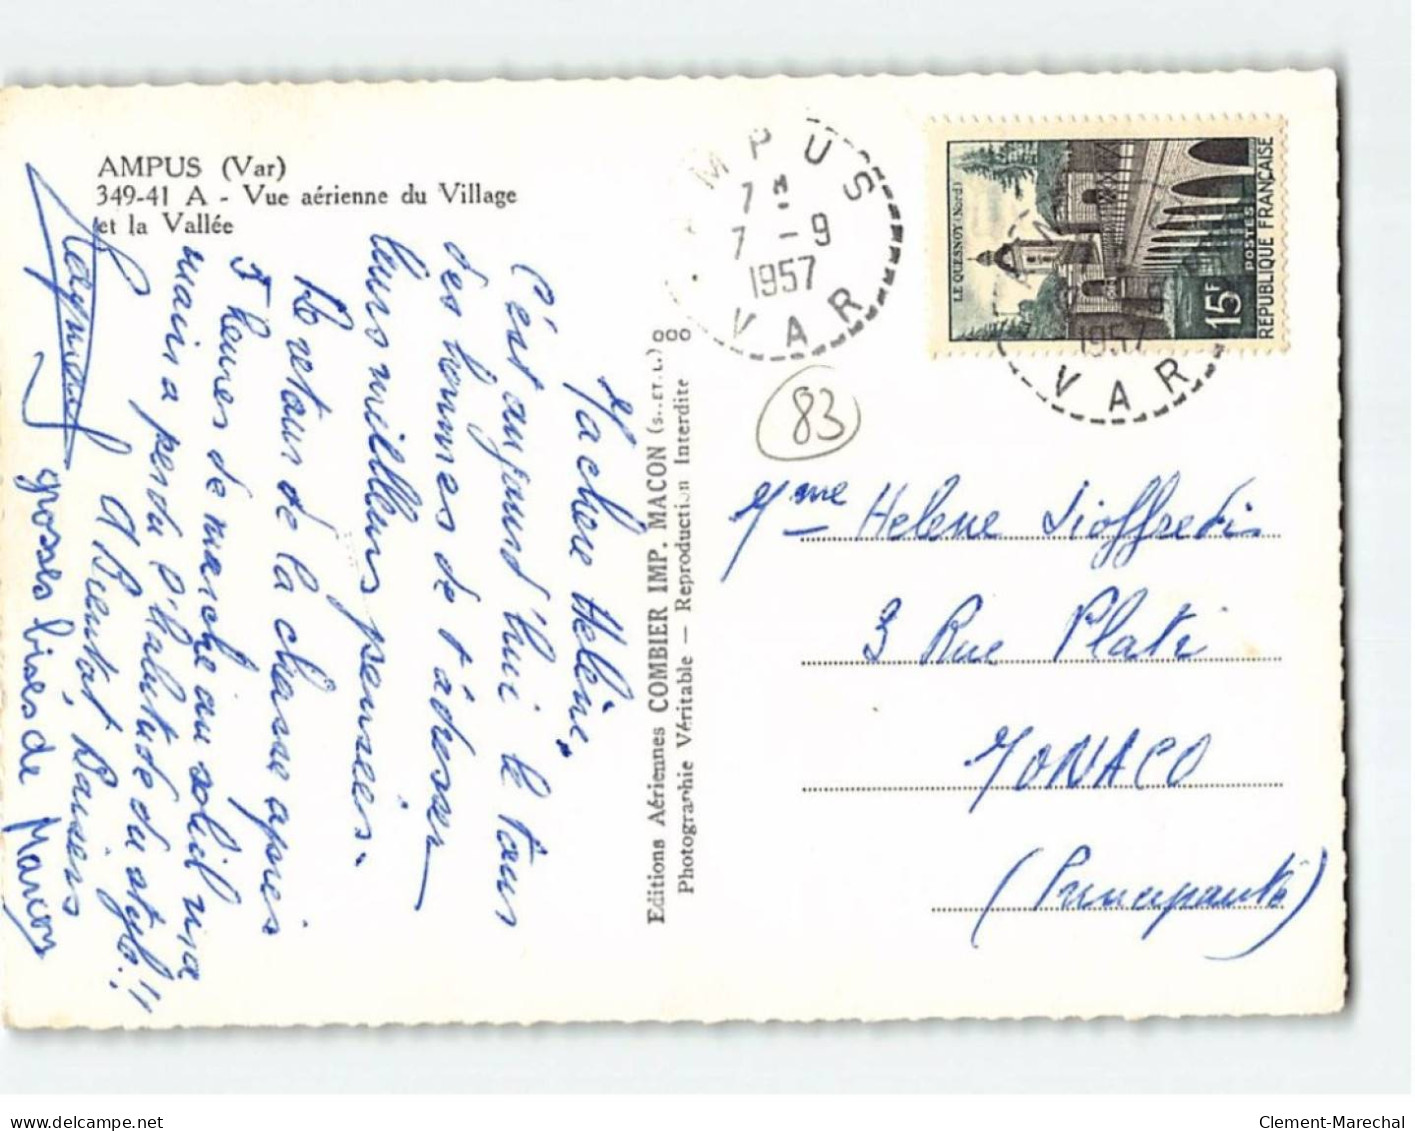 AMPUS (Var)
349-41 A - Vue aérienne du Village
et la Vallée
Ma chere Helène,
C'est aujourd'hui le tour
des hommes de t'adresser
leurs meilleurs pensées.
De retour de la chasse après
7 heures de marche au soleil ma
main a perdu l'habitude du stylo!!
A Bientot, Baisers
grosses bises de Marcon
Editions Aériennes COMBIER IMP. MACON (S.ET.L.)
Photographie Véritable — Reproduction Interdite
AMPUS
7 H
7 -9
1957
VAR
LE QUESNOY (Nord)
15F
POSTES
REPUBLIQUE FRANÇAISE
1957
VAR
83
Mme Helene Gioffredi
3 Rue Plati
MONACO
(Principauté)
delcampe.net
Clement-Marechal